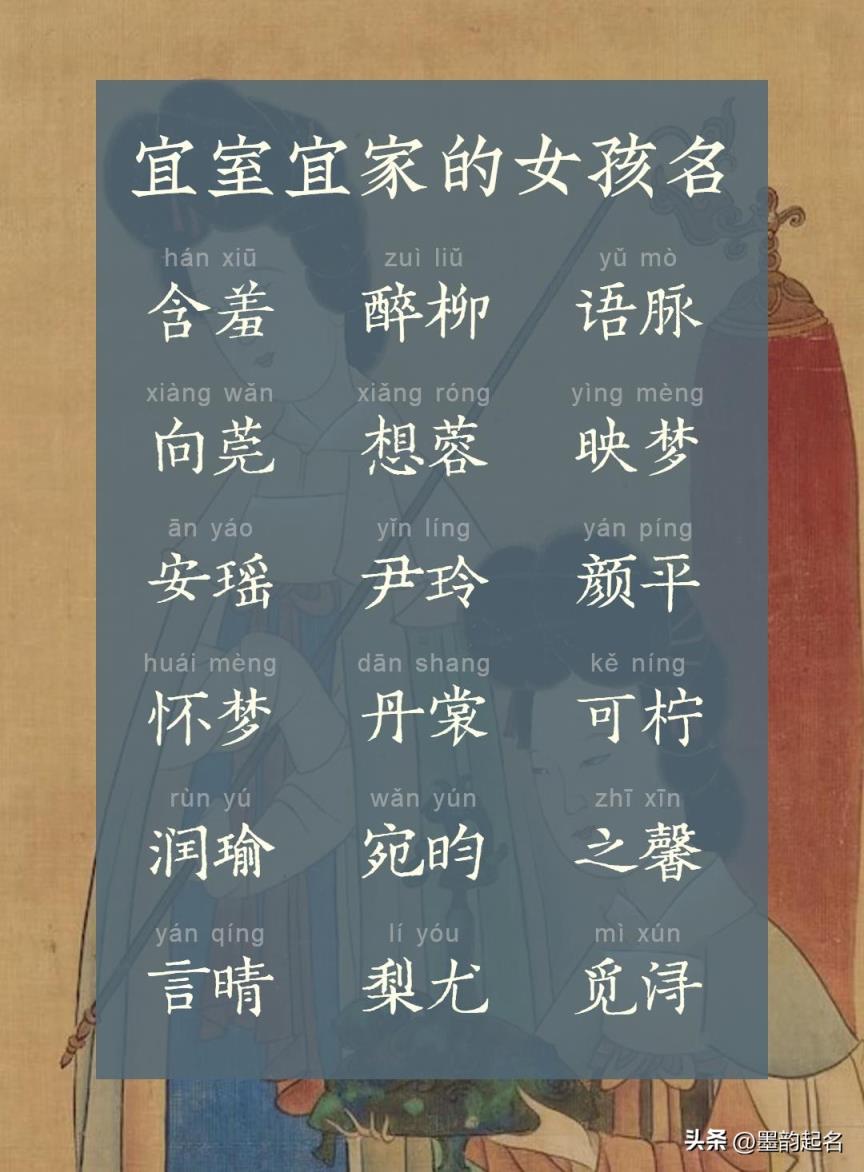 宜室宜家的女孩名
hán xiū zuì liǔ yǔ mò
含羞 醉柳 语脉
xiàng wǎn xiǎng róng yìng mèng
向莞 想蓉 映梦
ān yáo yǐn líng yán píng
安瑶 尹玲 颜平
huái mèng dān shang kě níng
怀梦 丹裳 可柠
rùn yú wǎn yún zhī xīn
润瑜 宛昀 之馨
yán qíng lí yóu mì xún
言晴 梨尤 觅浔
头条 @墨韵起名